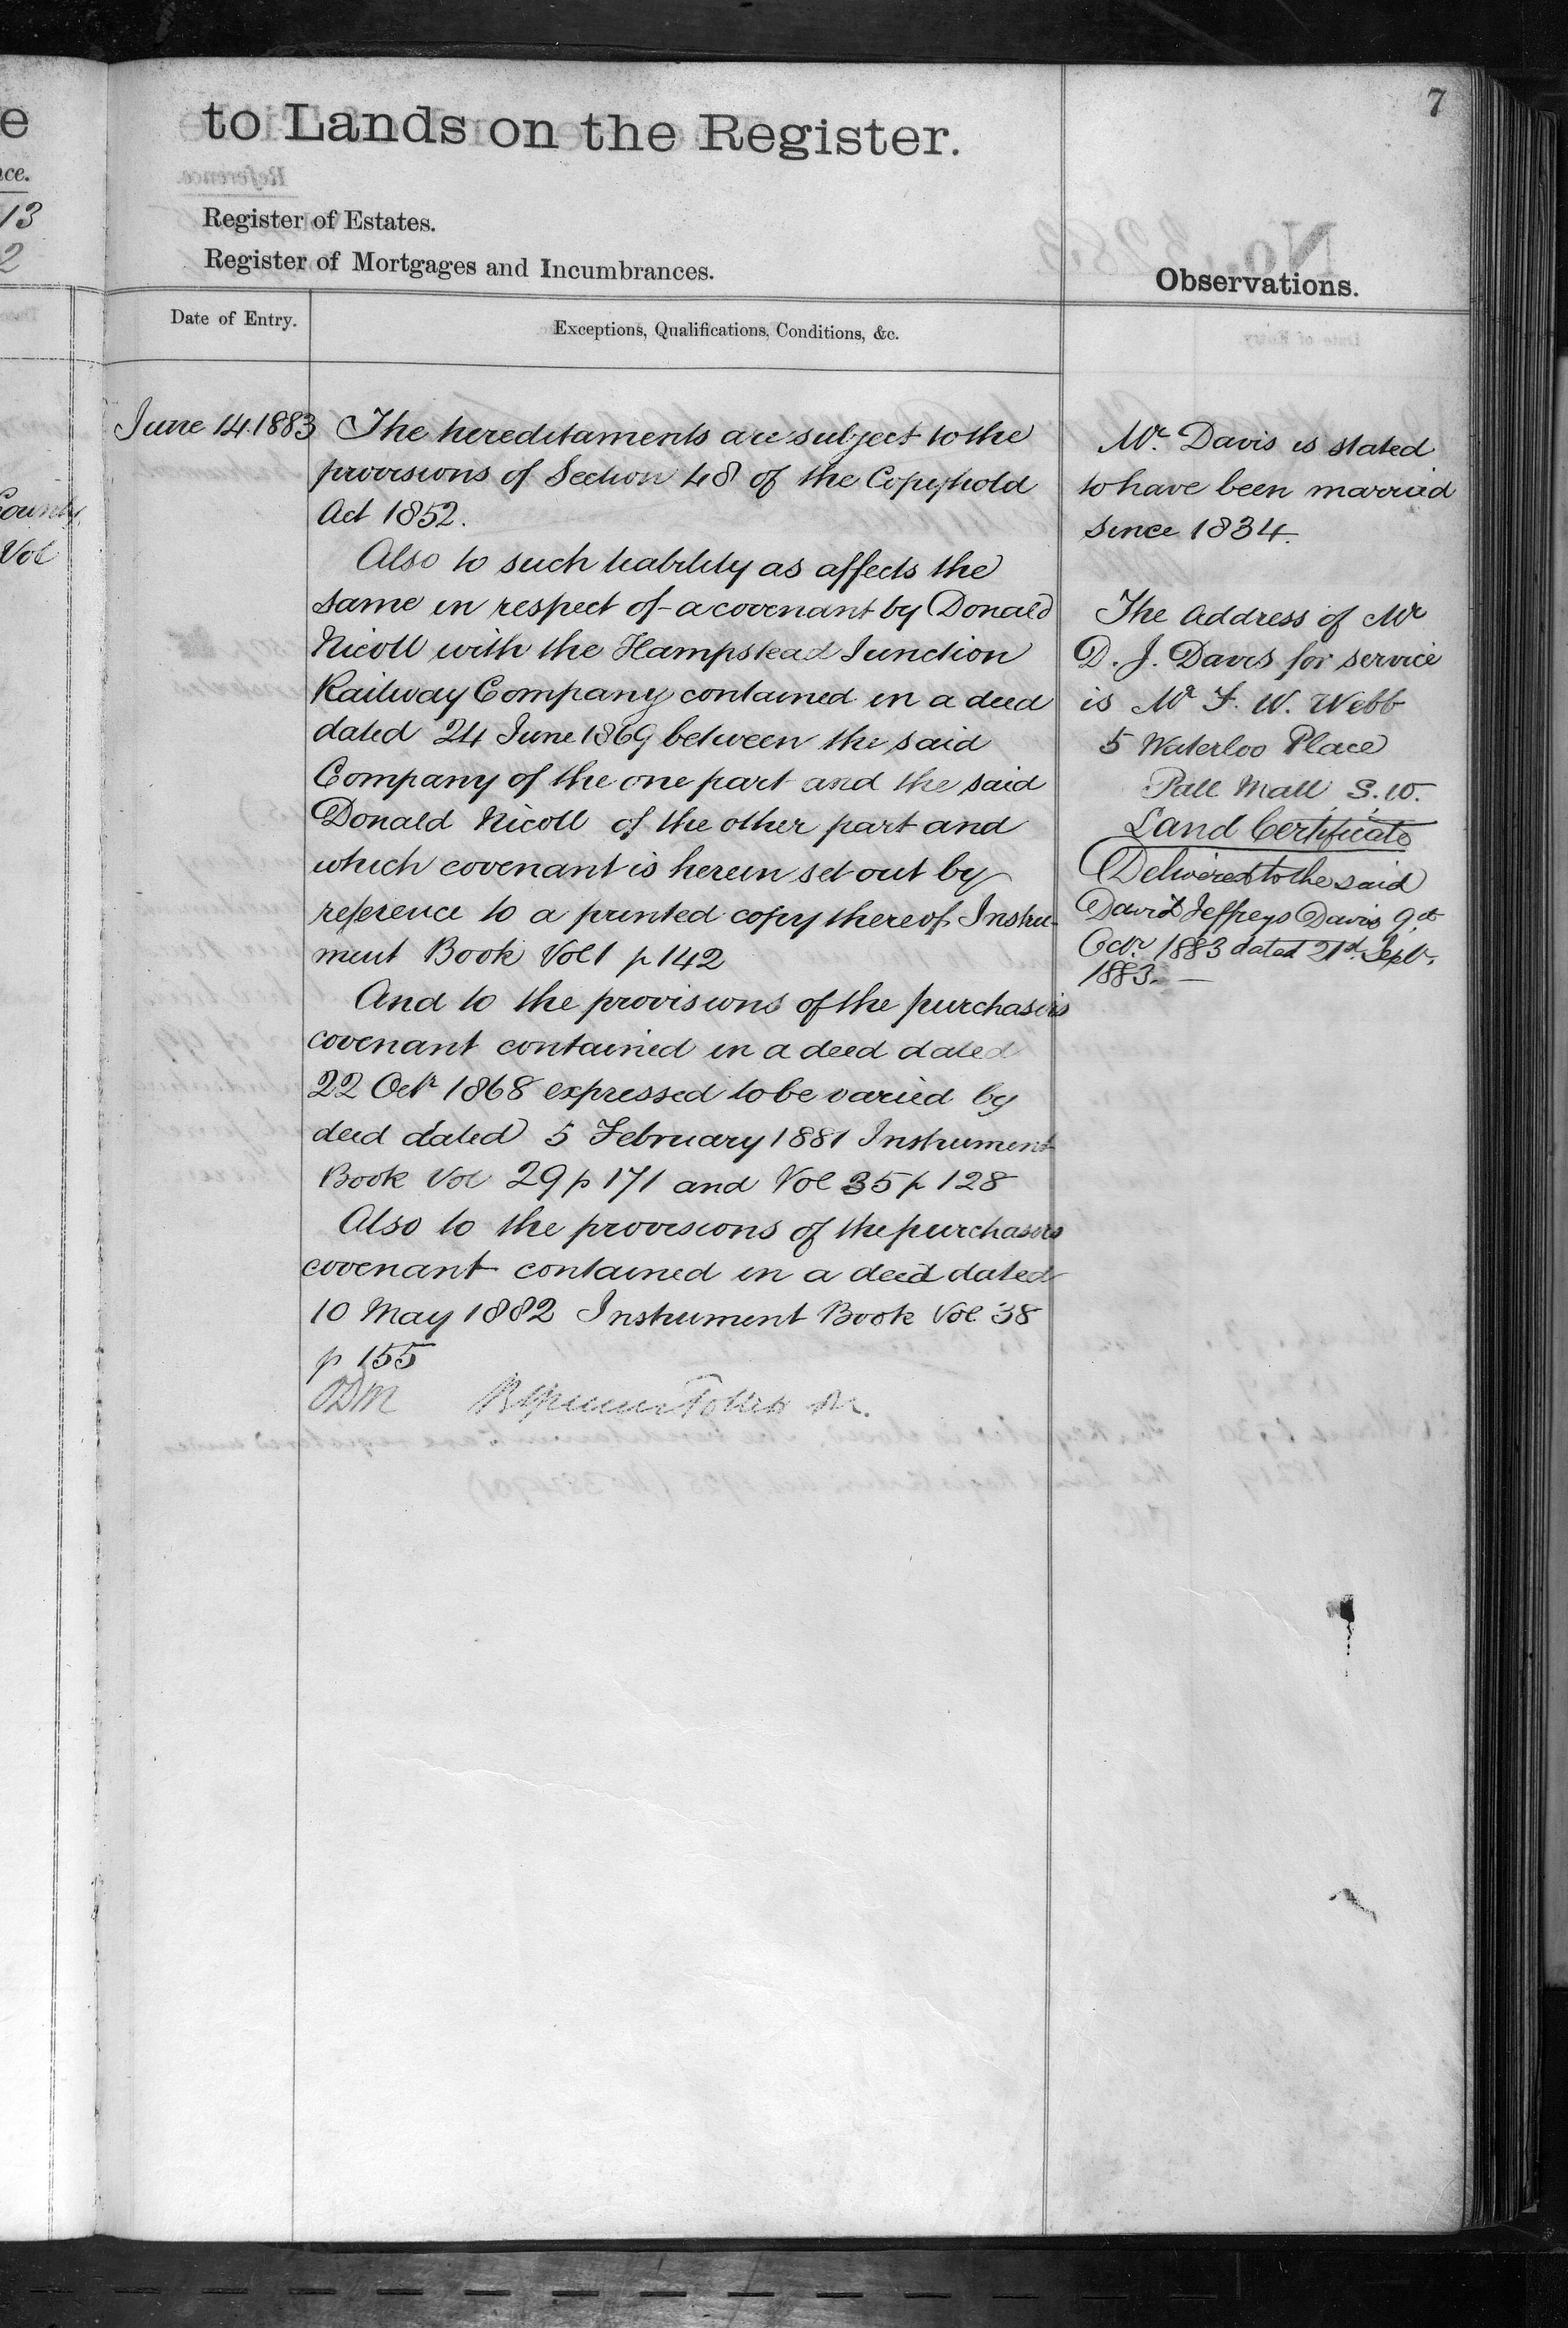 7
to Lands on the Register.
Register of Estates.
Register of Mortgages and Incumbrances.
Observations.
Date of Entry.
Exceptions, Qualifications, Conditions, &c.
June 14. 1883
The hereditaments are subject to the
provisions of Section 48 of the Copyhold
Act 1852.
Also to such liability as affects the
same in respect of a covenant by Donald
Nicoll with the Hampstead Junction
Railway Company contained in a deed
dated 24 June 1869 between the said
Company of the one part and the said
Donald Nicoll of the other part and
which covenant is herein set out by
reference to a printed copy thereof Instru-
ment Book Vol 1 p 142
And to the provisions of the purchasers
covenant contained in a deed dated
22 Octr 1868 expressed to be varied by
deed dated 5 February 1881 Instrument
Book Vol 29 p 171 and Vol 35 p 128
Also to the provisions of the purchasers
covenant contained in a deed dated
10 May 1882 Instrument Book Vol 38
p 155
Mr. Davis is stated
to have been married
since 1834.
The Address of Mr
D. J. Davis for service
is Mr F. W. Webb
5 Waterloo Place
Pall Mall S.W.
Land Certificate
Delivered to the said
David Jeffreys Davis 9th
Octr. 1883 dated 21st. Septr.
1883. —
13
2
County
Vol